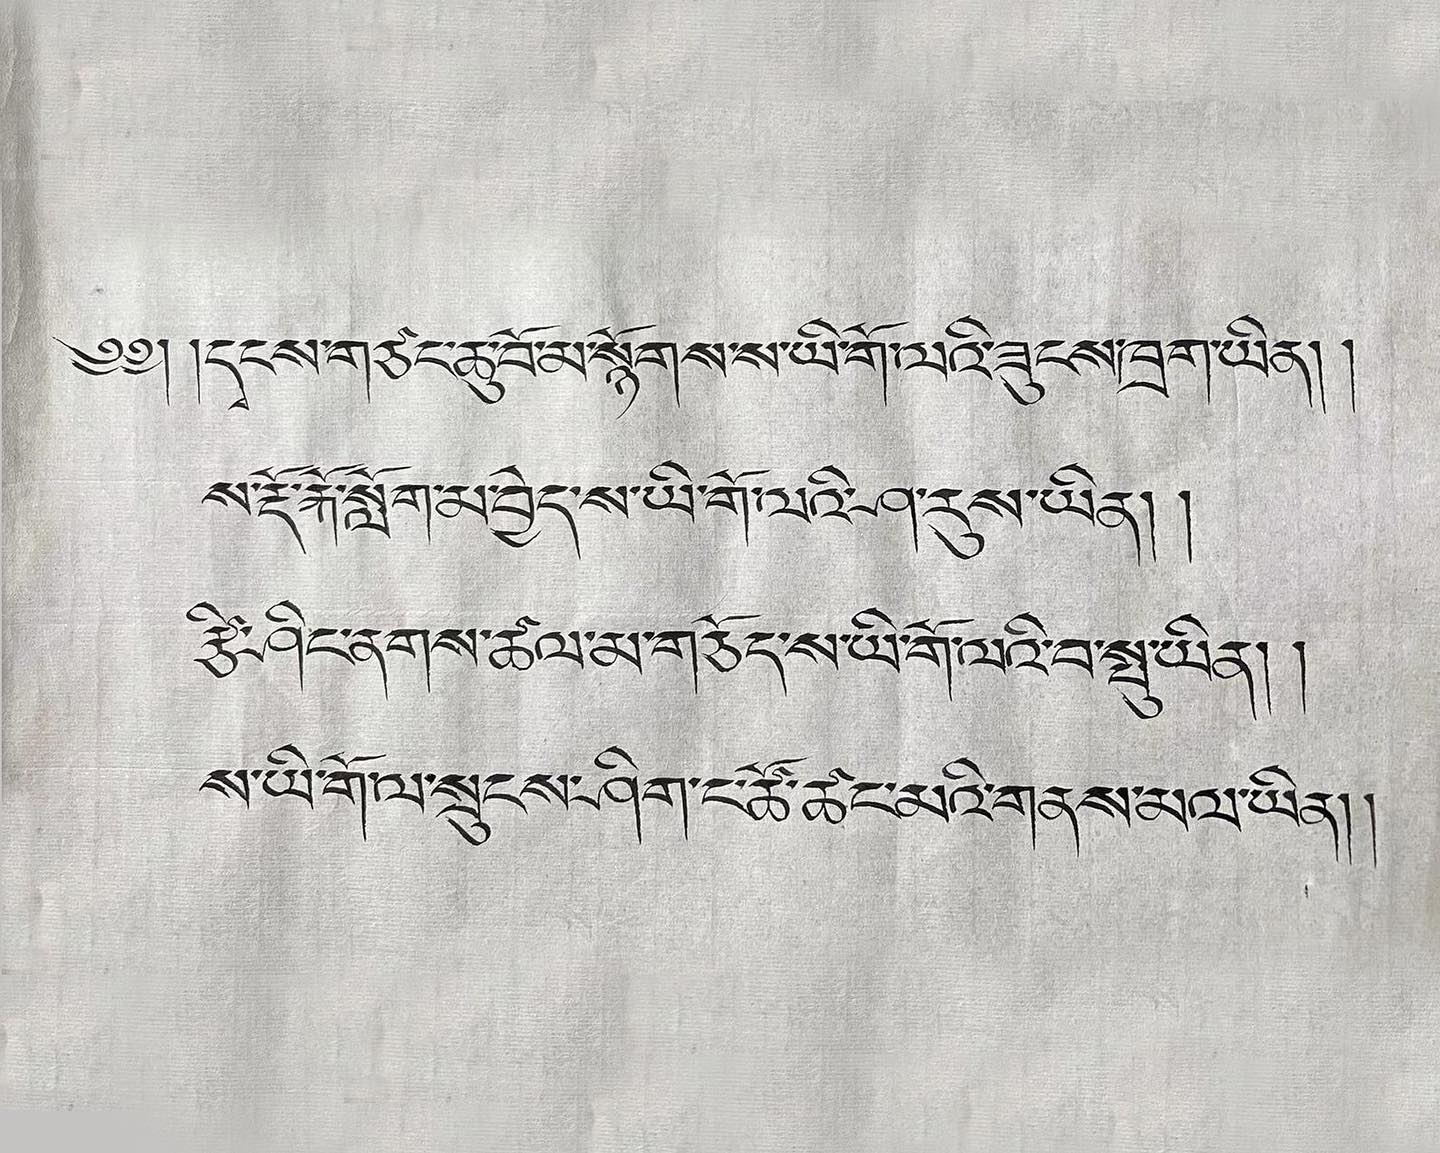 ༄༅། །དྭངས་གཙང་ཆུ་བོ་མ་སྙོགས་ས་ཡི་གོ་ལའི་ཟུངས་ཁྲག་ཡིན། །
ས་རྡོ་རྐོ་སློག་མ་བྱེད་ས་ཡི་གོ་ལའི་ཤ་རུས་ཡིན། །
རྩི་ཤིང་ནགས་ཚལ་མ་གཅོད་ས་ཡི་གོ་ལའི་བ་སྤུ་ཡིན། །
ས་ཡི་གོ་ལ་སྲུངས་ཤིག་ང་ཚོ་ཚང་མའི་གནས་མལ་ཡིན། །